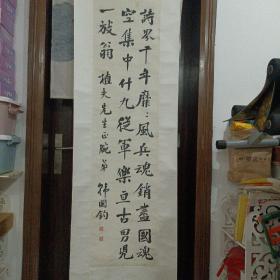 詩界千年靡〻風兵魂銷盡國魂
空集中什九從軍樂亘古男兒
一放翁 權夫先生正腕弟 韓國鈞